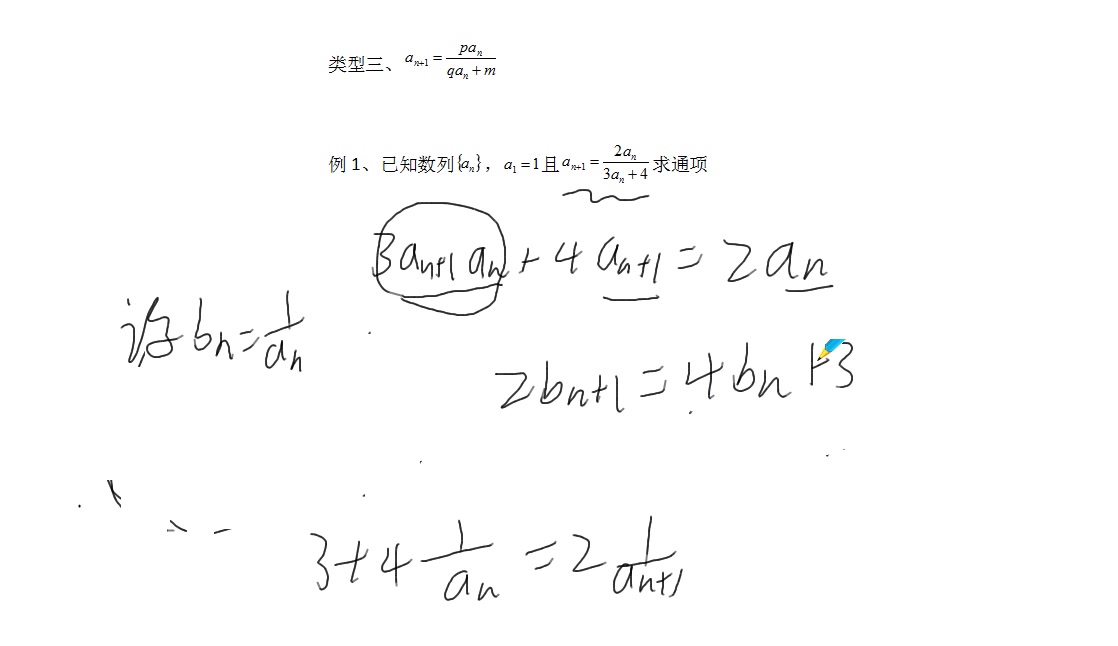 类型三、a_{n+1} = \frac{pa_n}{qa_n + m}
例 1、已知数列{a_n}，a_1 = 1且a_{n+1} = \frac{2a_n}{3a_n + 4}求通项
3a_{n+1} a_n + 4a_{n+1} = 2a_n
设 b_n = \frac{1}{a_n}
2b_{n+1} = 4b_n + 3
3 + 4\frac{1}{a_n} = 2\frac{1}{a_{n+1}}